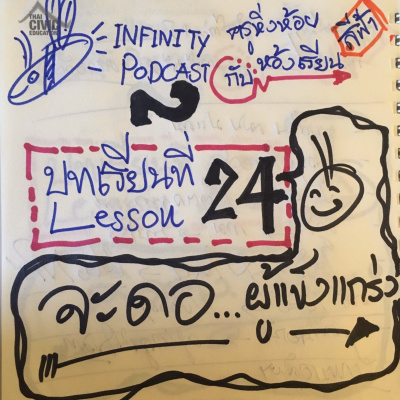 THAI
CIVIC
EDUCATION
INFINITY
PODCAST
ครูหิ่งห้อย
กับห้องเรียน
สีฟ้า
2
บทเรียนที่
Lesson 24
จะดอ...ผู้แข็งแกร่ง